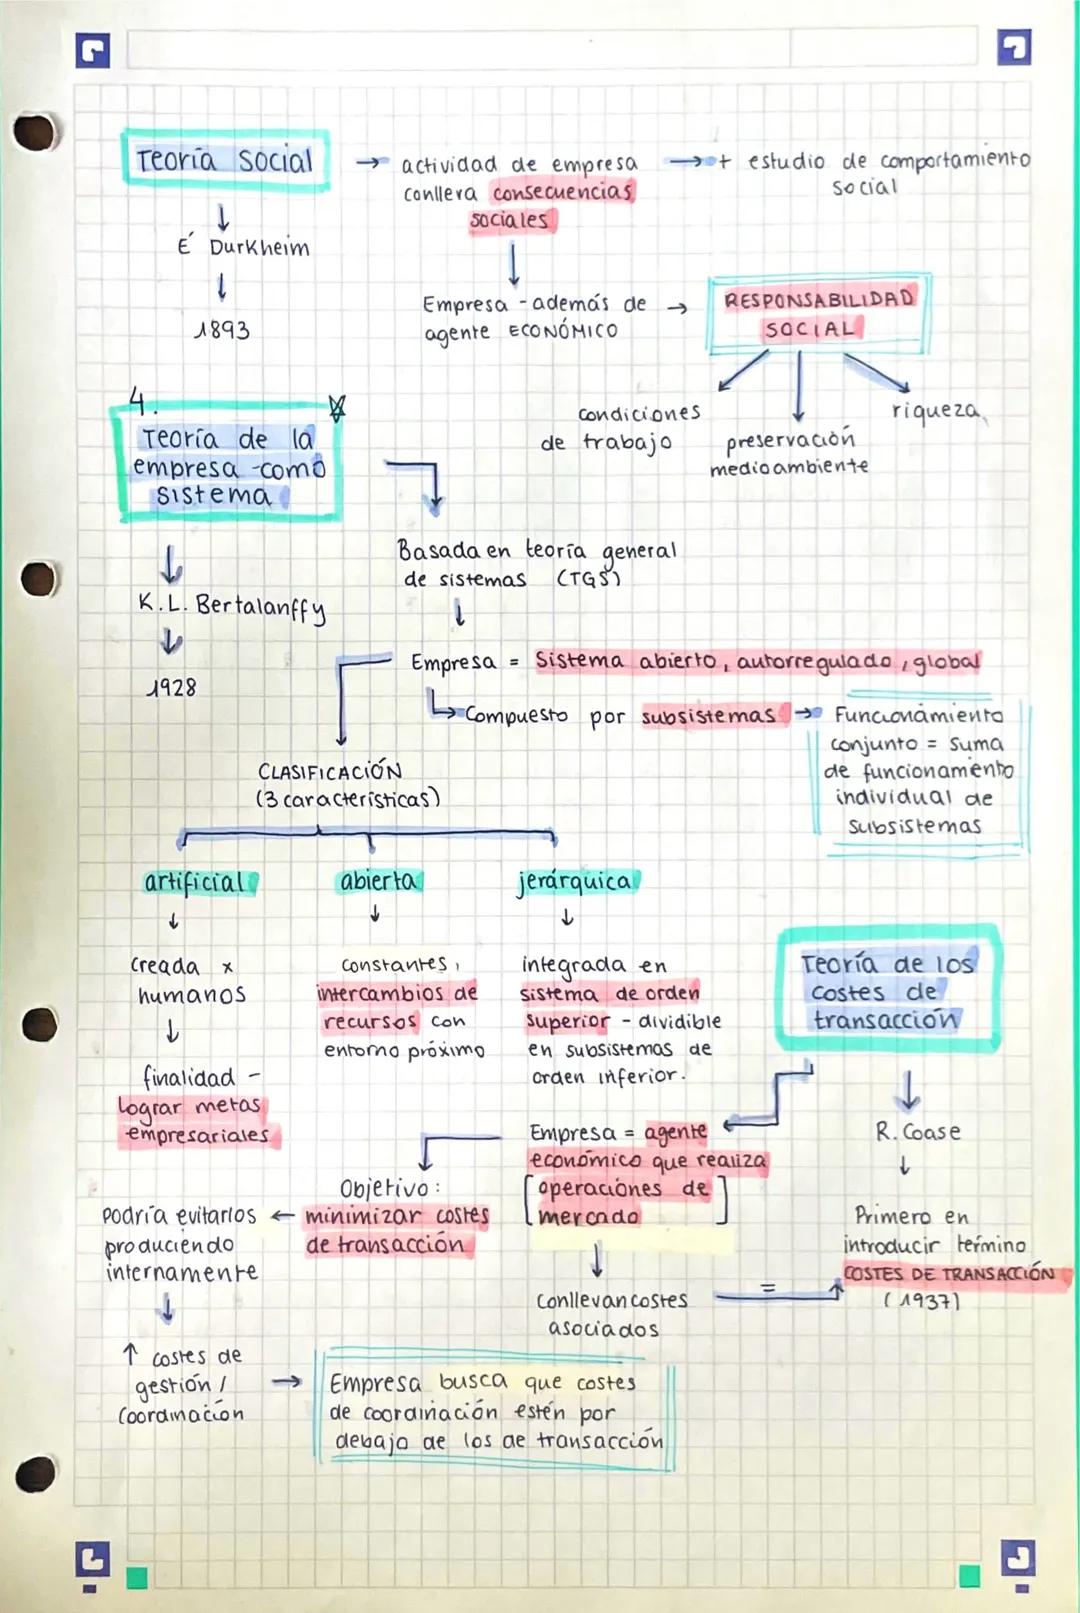 Teoría social
↓
É Durkheim
↓
1893
→ actividad de empresa
conlleva consecuencias
sociales
→ + estudio de comportamiento
social
↓
Empresa - además de →
agente ECONÓMICO
RESPONSABILIDAD
SOCIAL
condiciones
de trabajo
preservación
medioambiente
riqueza
4.
Teoría de la
empresa como
sistema
↓
K.L. Bertalanffy
↓
1928
Basada en teoría general
de sistemas (TGS)
↓
Empresa = Sistema abierto, autorregulado, global
Compuesto por subsistemas →
Funcionamiento
conjunto = Suma
de funcionamento
individual de
Subsistemas
CLASIFICACIÓN
(3 características)
artificial
↓
creada x
humanos
↓
finalidad -
lograr metas
empresariales
abierta
↓
constantes,
intercambios de
recursos con
entorno próximo
jerárquica
↓
integrada en
sistema de orden
superior - dividible
en subsistemas de
orden inferior.
Teoría de los
costes de
transacción
↓
R. Coase
↓
Primero en
introducir término
COSTES DE TRANSACCIÓN
(1937)
Empresa = agente
económico que realiza
[operaciones de
mercado]
↓
Conllevan costes
asociados
=
Objetivo:
minimizar costes
de transacción
←
podría evitarlos
produciendo
internamente
↓
↑ costes de
gestión /
coordinación
→
Empresa busca que costes
de coordinación estén por
debajo de los de transacción